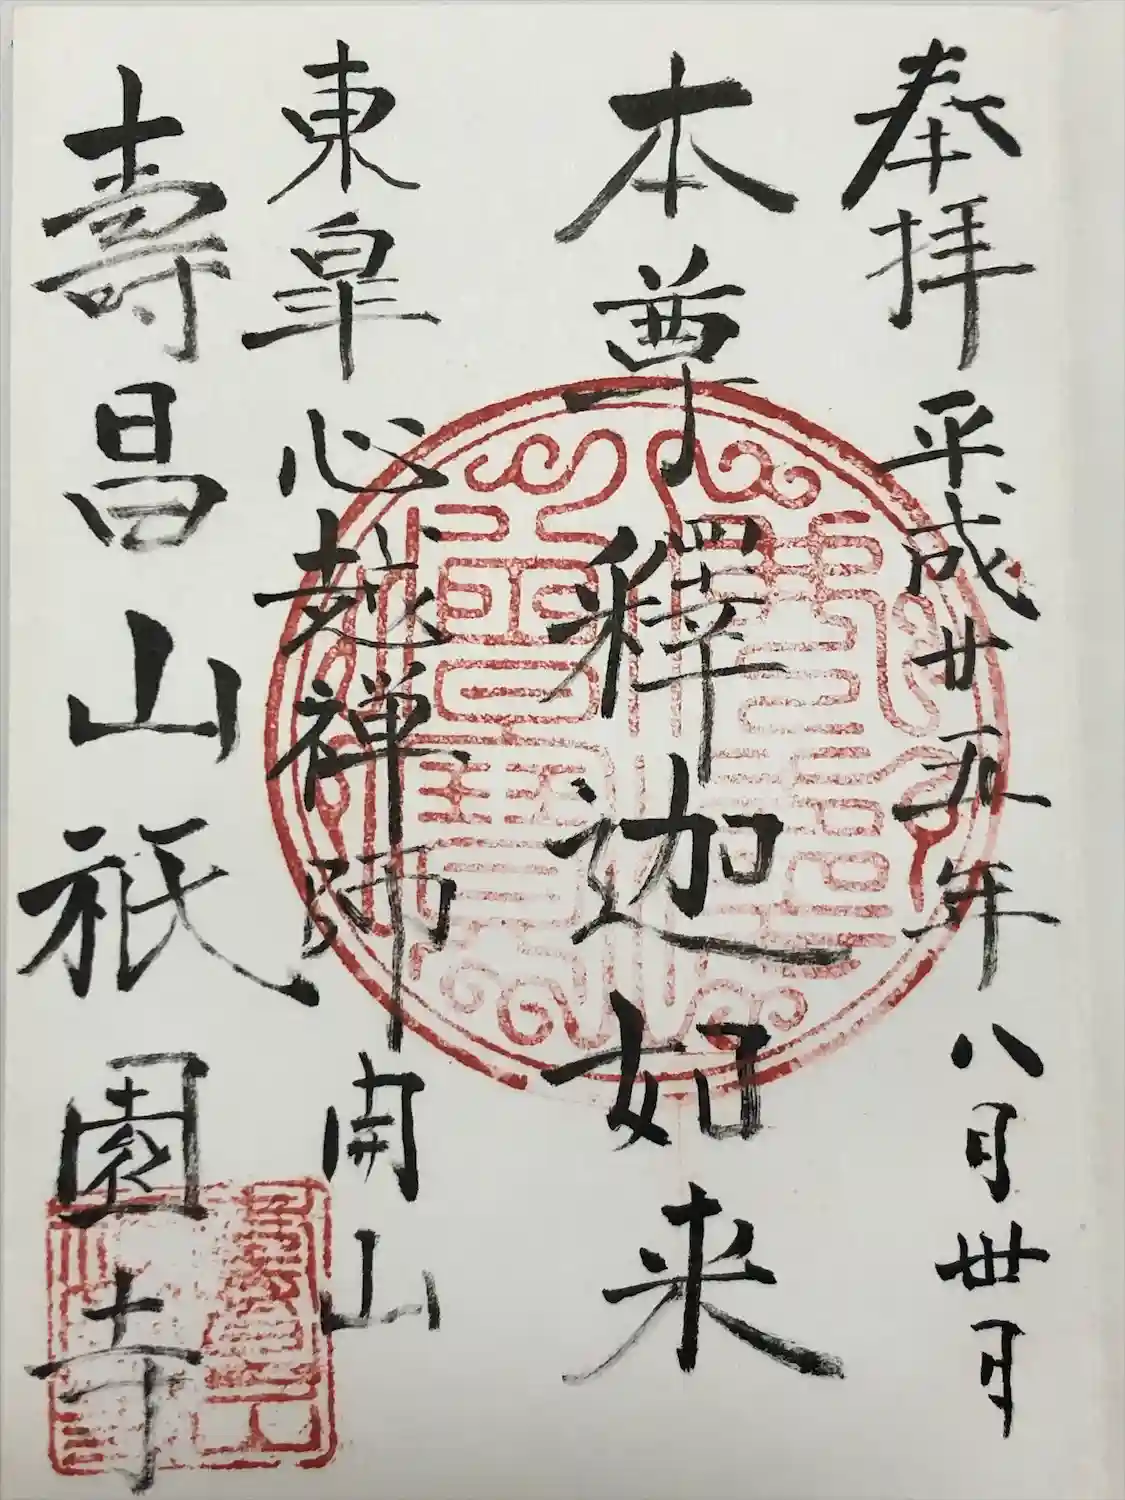 奉拝 平成廿五年八月卅日
本尊 釋迦如来
東皐心越禅師開山
壽昌山祇園寺